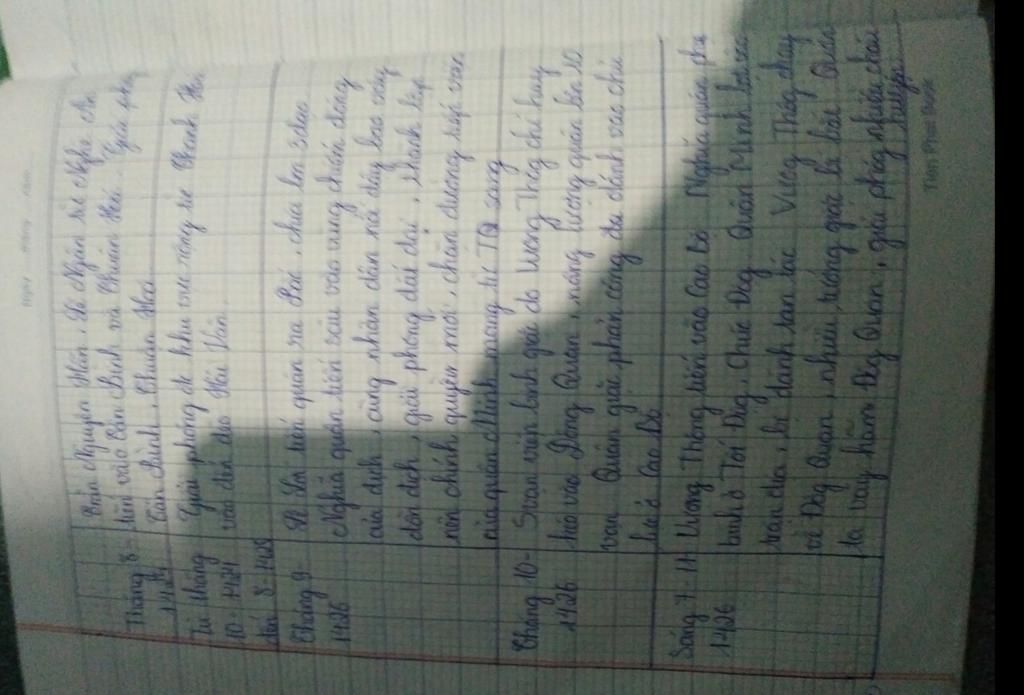 ngày ..... tháng ..... năm .....
Trần Nguyên Hãn, Lê Ngân từ Nghệ An
Tháng 8- tiến vào Tân Bình và Thuận Hóa. Giải phóng
1425 Tân Bình, Thuận Hóa
Từ tháng Giải phóng đc khu vực rộng từ Thanh Hóa
10-1424 vào đến đèo Hải Vân
đến 8-1425
Tháng 9 Lê Lợi tiến quân ra Bắc, chia làm 3 đạo
1426 Nghĩa quân tiến sâu vào vùng chiếm đóng
của địch, cùng nhân dân nổi dậy bao vây
đồn địch, giải phóng đất đai, thành lập
nên chính quyền mới, chặn đường tiếp viện
của quân Minh mang từ TQ sang
Tháng 10- 5 vạn viện binh giặc do Vương Thông chỉ huy
1426 kéo vào Đông Quan, nâng lượng quân lên 10
vạn. Quân giặc phản công đã đánh vào chủ
lực ở Cao Bộ
Sáng 7-11 Vương Thông tiến vào Cao Bộ. Nghĩa quân phục
1426 binh ở Tốt Động, Chúc Động. Quân Minh lọt vào
trận địa, bị đánh tan tác. Vương Thông chạy
về Đông Quan, nhiều tướng giặc bị bắt. Quân
ta vây hãm Đông Quan, giải phóng nhiều châu
huyện
Tiến Phát Book